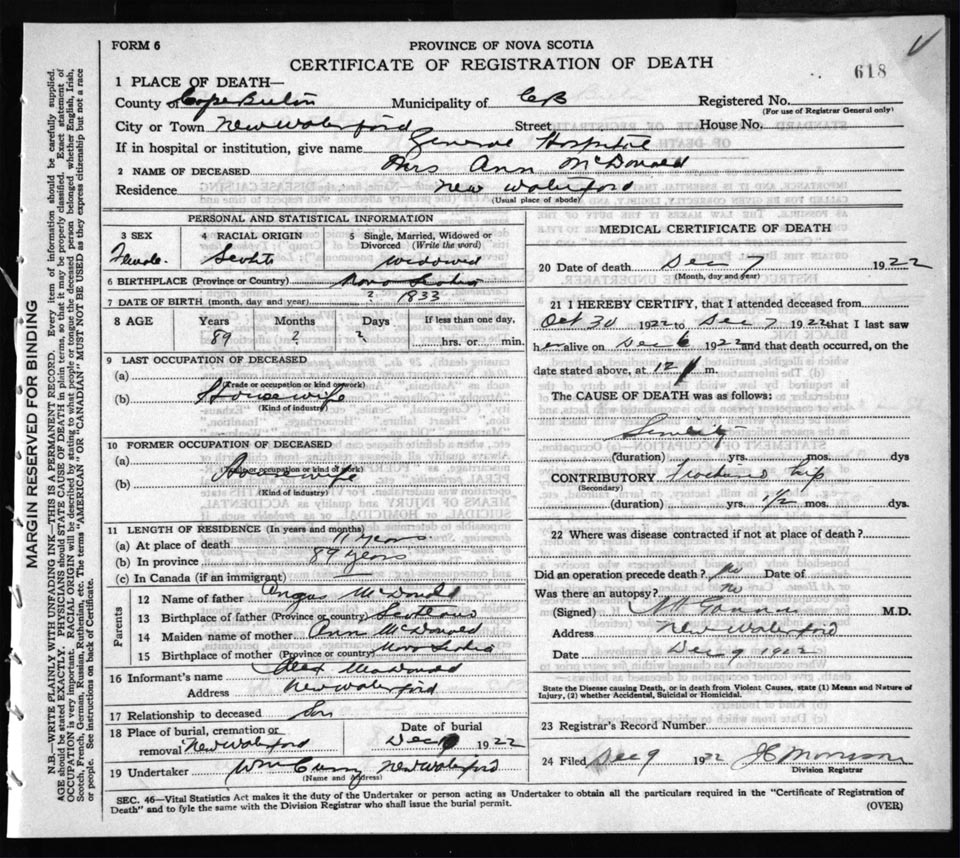 FORM 6
PROVINCE OF NOVA SCOTIA
CERTIFICATE OF REGISTRATION OF DEATH
618
1 PLACE OF DEATH—
County of Cape Breton Municipality of CB Registered No.
(For use of Registrar General only)
City or Town New Waterford Street House No.
If in hospital or institution, give name General Hospital
2 NAME OF DECEASED Mrs Ann McDonald
Residence New Waterford
(Usual place of abode)
PERSONAL AND STATISTICAL INFORMATION
3 SEX 4 RACIAL ORIGIN 5 Single, Married, Widowed or
Divorced (Write the word)
Female. Scotch Widowed
6 BIRTHPLACE (Province or Country) Nova Scotia
7 DATE OF BIRTH (month, day and year) ? 1833
8 AGE Years Months Days If less than one day,
89 ? ? hrs. or min.
9 LAST OCCUPATION OF DECEASED
(a)
(Trade or occupation or kind of work)
(b) Housewife
(Kind of industry)
10 FORMER OCCUPATION OF DECEASED
(a)
(Trade or occupation or kind of work)
(b) Housewife
(Kind of industry)
11 LENGTH OF RESIDENCE (In years and months)
(a) At place of death 11 years
(b) In province 89 years
(c) In Canada (if an immigrant) —
Parents
12 Name of father Angus McDonald
13 Birthplace of father (Province or country) Scotland
14 Maiden name of mother Ann McDonald
15 Birthplace of mother (Province or country) Nova Scotia
16 Informant's name Alex MacDonald
Address New Waterford
17 Relationship to deceased Son
18 Place of burial, cremation or Date of burial
removal New Waterford Dec 1922
19 Undertaker Wm New Waterford
(Name and address)
MEDICAL CERTIFICATE OF DEATH
20 Date of death Dec 7 1922
(Month, day and year)
21 I HEREBY CERTIFY, that I attended deceased from
Oct 30 1922 to Dec 7 1922 that I last saw
her alive on Dec 6 1922 and that death occurred, on the
date stated above, at 12 m.
The CAUSE OF DEATH was as follows:
Senility
(duration) yrs. mos. dys
CONTRIBUTORY Fractured hip
(Secondary)
(duration) yrs. 1/2 mos. dys.
22 Where was disease contracted if not at place of death?
Did an operation precede death? no Date of
Was there an autopsy? no
(Signed) M.D.
Address New Waterford
Date Dec 9 1922
State the Disease causing Death, or in death from Violent Causes, state (1) Means and Nature of
Injury, (2) whether Accidental, Suicidal or Homicidal.
23 Registrar's Record Number
24 Filed Dec 9 1922 Morrison
Division Registrar
SEC. 46—Vital Statistics Act makes it the duty of the Undertaker or person acting as Undertaker to obtain all the particulars required in the "Certificate of Registration of
Death" and to fyle the same with the Division Registrar who shall issue the burial permit.
(OVER)
MARGIN RESERVED FOR BINDING
N.B.—WRITE PLAINLY WITH UNFADING INK—THIS IS A PERMANENT RECORD. Every item of information should be carefully supplied.
AGE should be stated EXACTLY. PHYSICIANS should STATE CAUSE OF DEATH in plain terms, so that it may be properly classified. Exact statement of
OCCUPATION is very important. RACIAL ORIGIN will be described by stating to what people or tongue the deceased person belonged whether English, Irish,
Scotch, French, German, Russian, Ruthenian, etc. The terms "AMERICAN" OR "CANADIAN" MUST NOT BE USED as they express citizenship but not a race
or people. See instructions on back of Certificate.